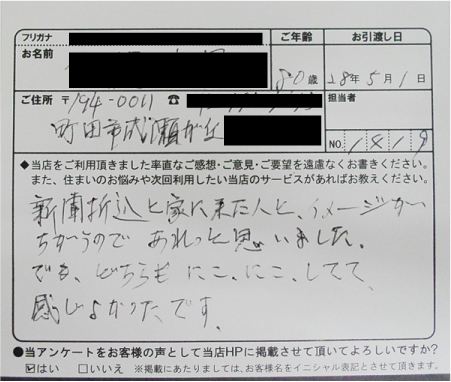 フリガナ ご年齢 お引渡し日
お名前 80歳 28年5月1日
ご住所 〒194-0011 ☎ 担当者
町田市成瀬が丘
NO. 1819
◆当店をご利用頂きました率直なご感想・ご意見・ご要望を遠慮なくお書きください。
また、住まいのお悩みや次回利用したい当店のサービスがあればお教えください。
新聞折込と家に来た人と、イメージが
ちがうので あれっと思いました。
でも、どちらも にこ、にこ、してて、
感じよかったです。
●当アンケートをお客様の声として当店HPに掲載させて頂いてよろしいですか?
☑はい □いいえ ※掲載にあたりましては、お客様名をイニシャル表記とさせて頂きます。